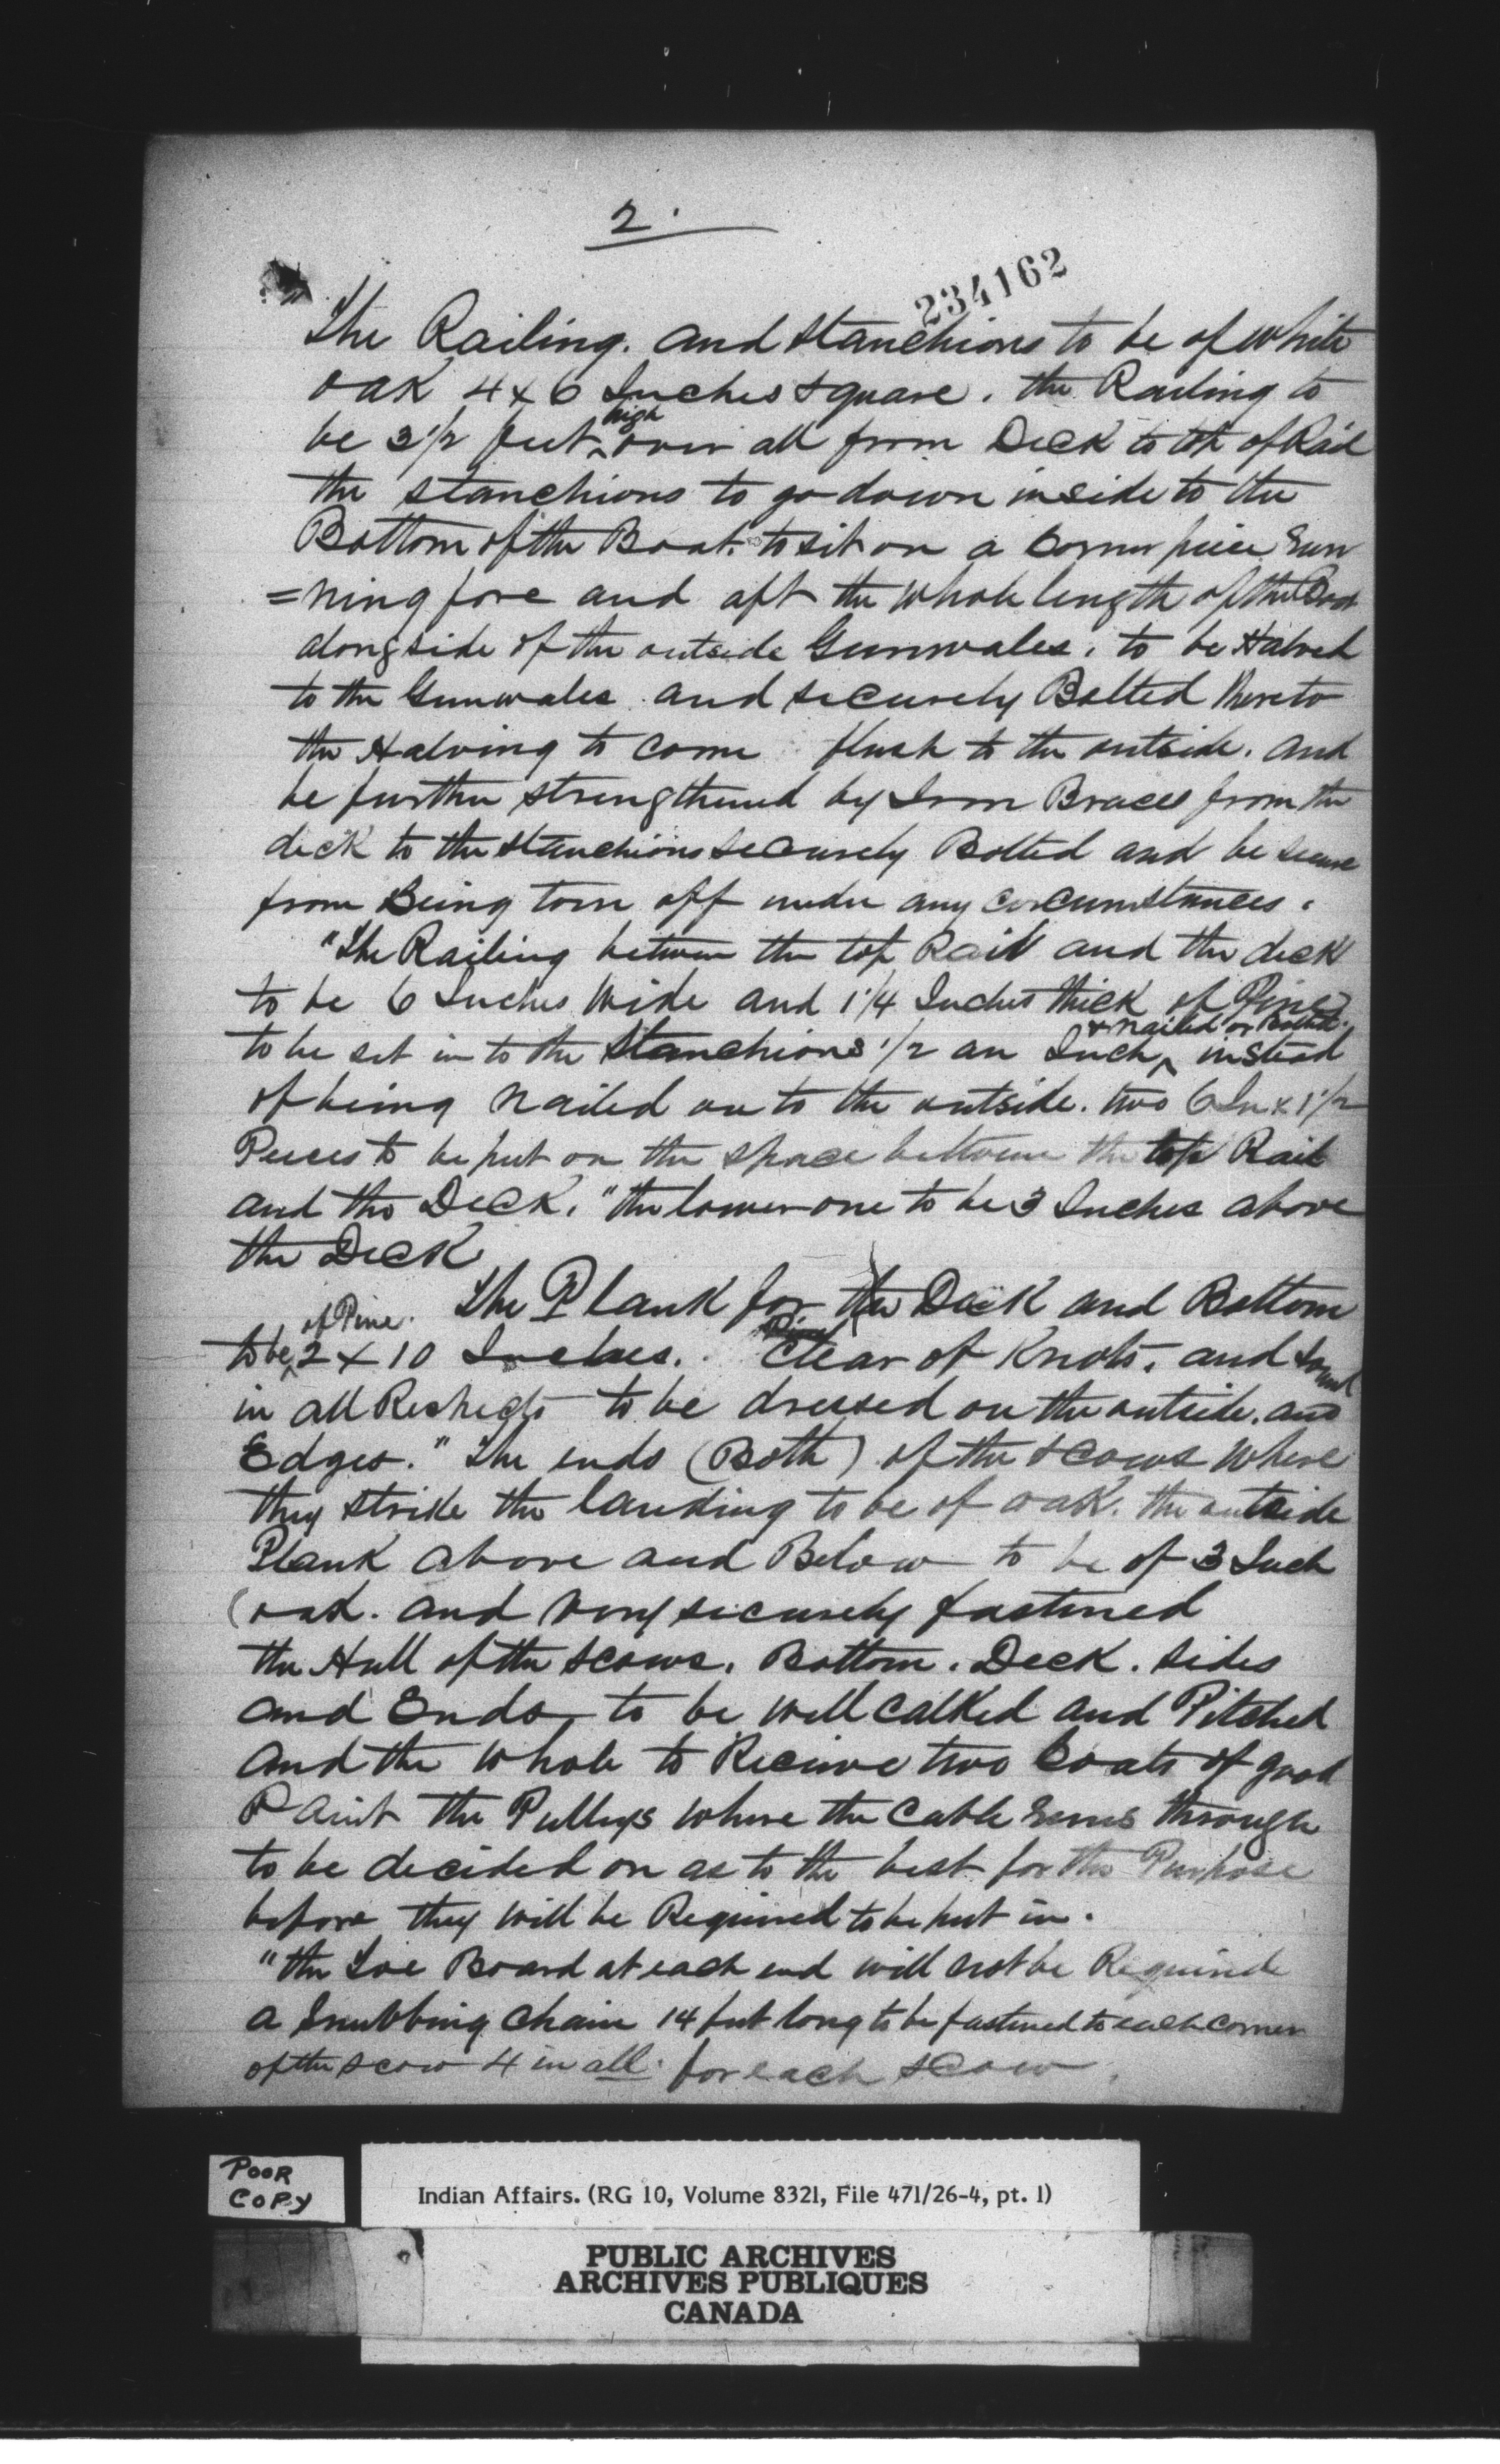 2.
234162
"The Railing. and Stanchions to be of White
oak 4 x 6 Inches square. the Railing to
be 3 1/2 feet high over all from Deck to top of Rail
the stanchions to go down inside to the
Bottom of the Boat. to sit on a Corner piece Run
=ning fore and aft the whole length of the Boat
alongside of the outside Gunwales. to be Halved
to the Gunwales and securely Bolted thereto
the Halving to come flush to the outside. and
be further strengthened by Iron Braces from the
deck to the stanchions securely Bolted and be secure
from Being torn off under any circumstances.
"The Railing between the top Rail and the deck
to be 6 Inches Wide and 1 1/4 Inches thick of Pine
to be set in to the Stanchions 1/2 an Inch & nailed or Bolted. instead
of being Nailed on to the outside. two 6 In x 1 1/2
Peices to be put on the space between the top Rail
and the Deck. "the lower one to be 3 Inches above
the Deck
The Plank for the Deck and Bottom
to be of Pine. 2 x 10 Inches. Clear of Knots. and sound
in all Respects to be dressed on the outside. and
Edges." The ends (Both) of the scows where
they strike the landing to be of oak. the outside
Plank above and Below to be of 3 Inch
(oak. and very securely fastened
the Hull of the scows. Bottom. Deck. sides
and Ends to be well calked and Pitched
and the whole to Recieve two Coats of good
Paint the Pulleys where the Cable Runs through
to be decided on as to the best for the Purpose
before they will be Required to be put in.
"the Toe Board at each end will not be Required
a Snubbing Chain 14 feet long to be fastened to each corner
of the scow 4 in all. for each scow
POOR
COPY
Indian Affairs. (RG 10, Volume 8321, File 471/26-4, pt. 1)
PUBLIC ARCHIVES
ARCHIVES PUBLIQUES
CANADA